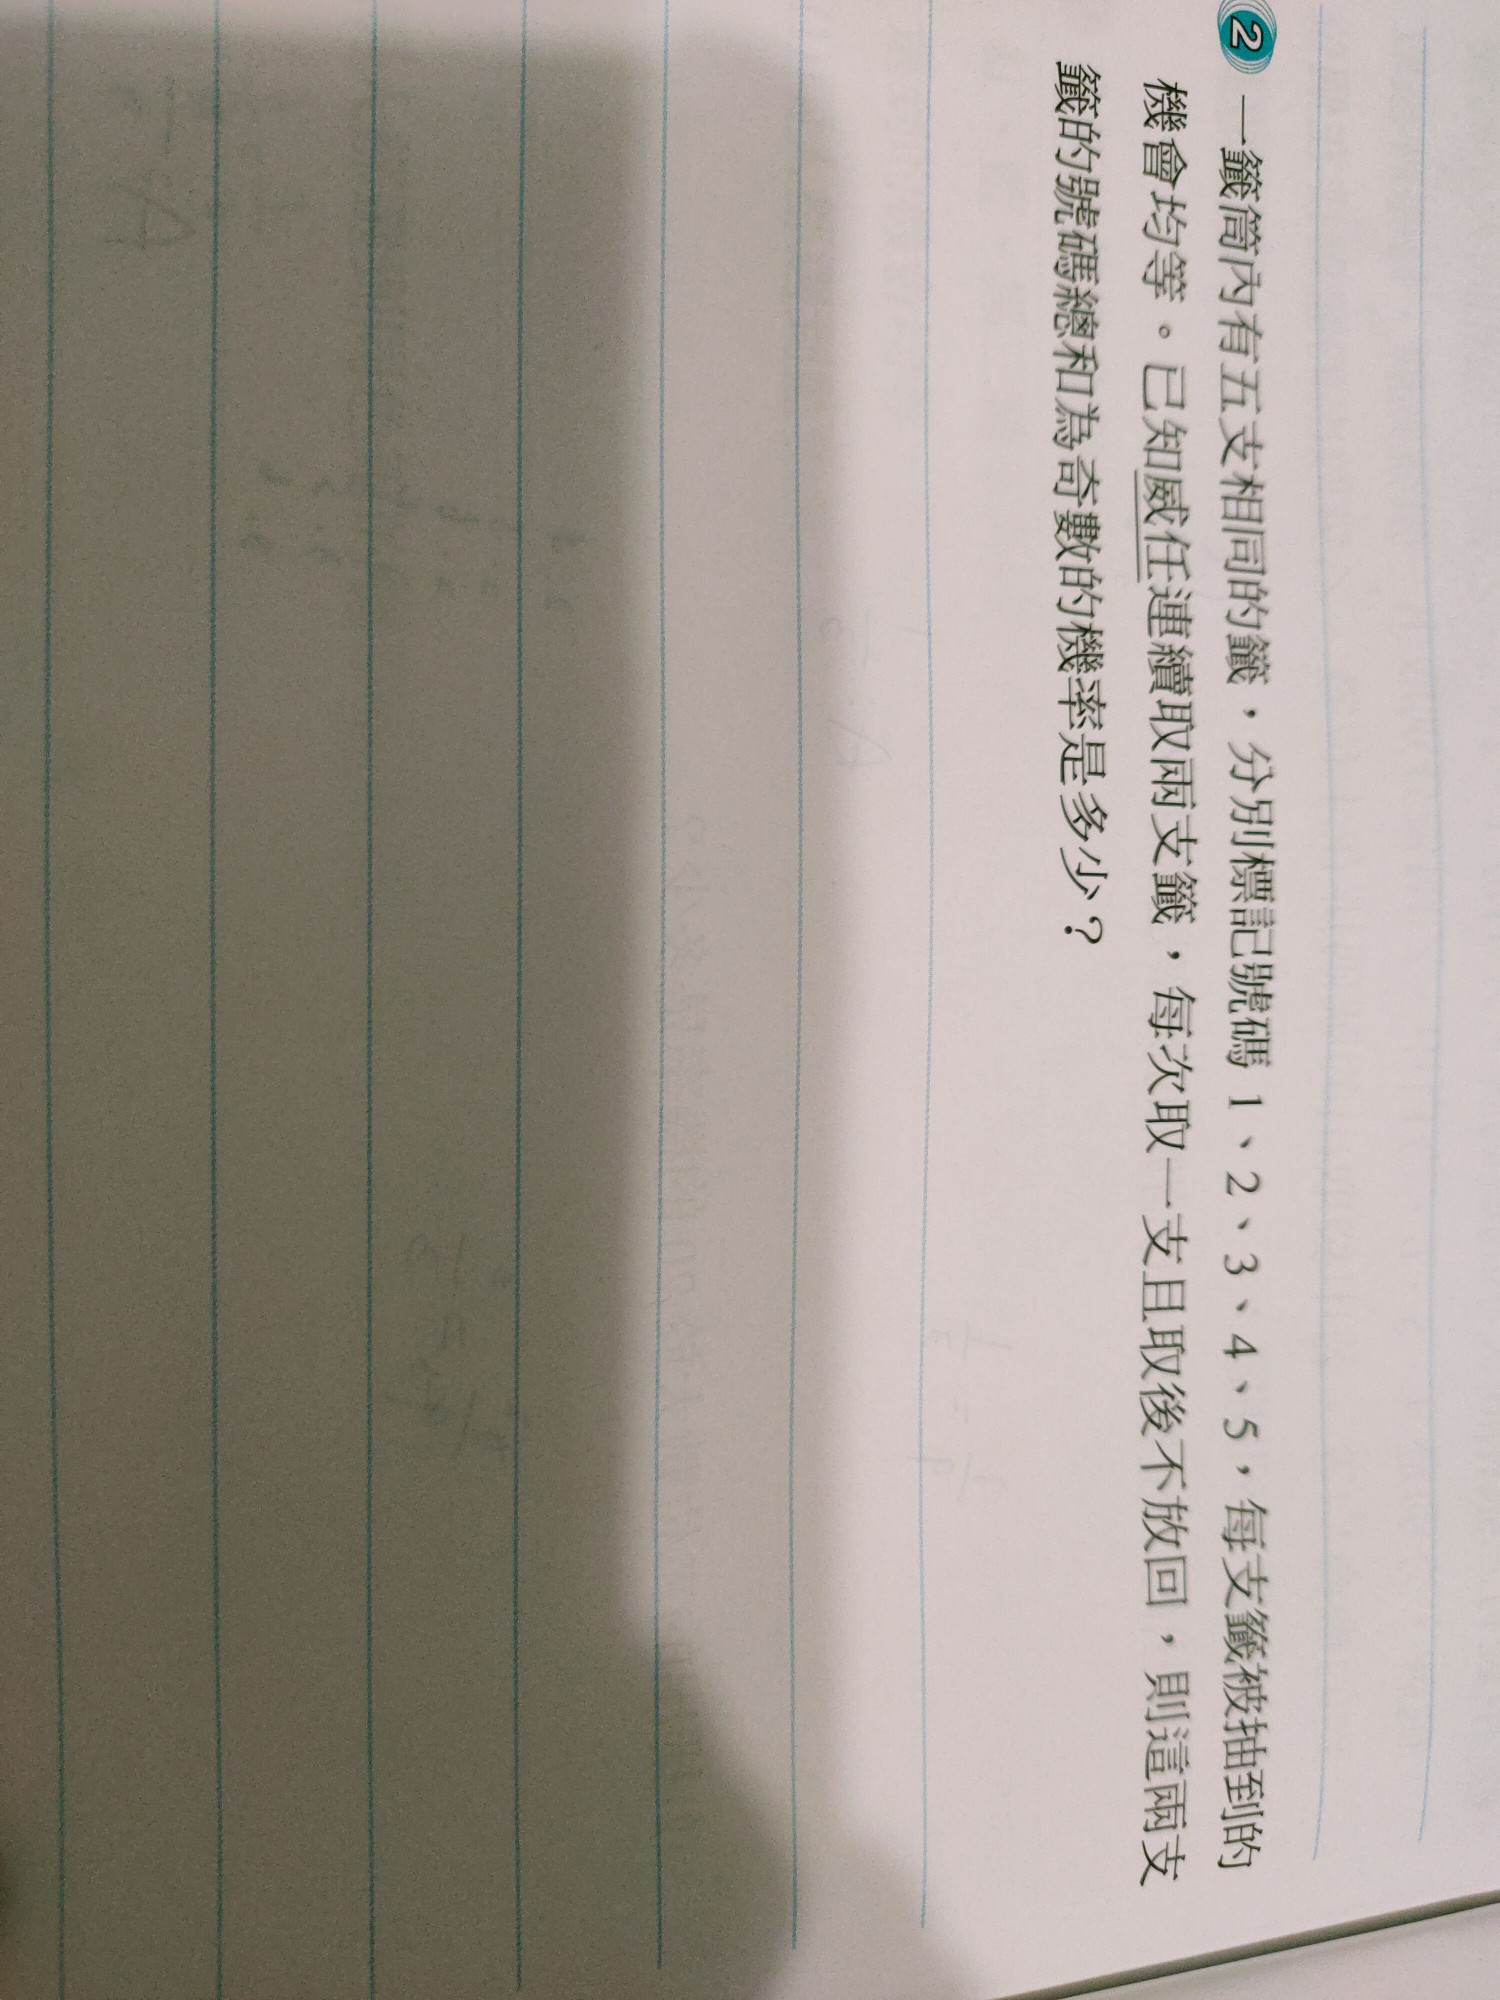 2 一籤筒內有五支相同的籤，分別標記號碼 1、2、3、4、5，每支籤被抽到的
機會均等。已知威任連續取兩支籤，每次取一支且取後不放回，則這兩支
籤的號碼總和為奇數的機率是多少？